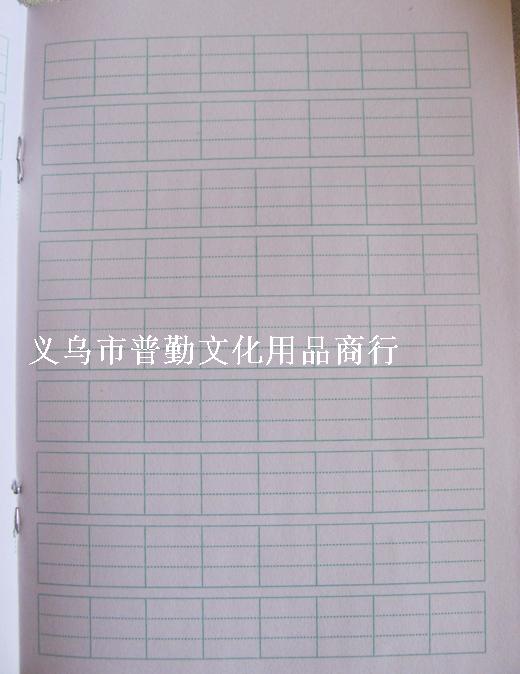 义乌市普勤文化用品商行